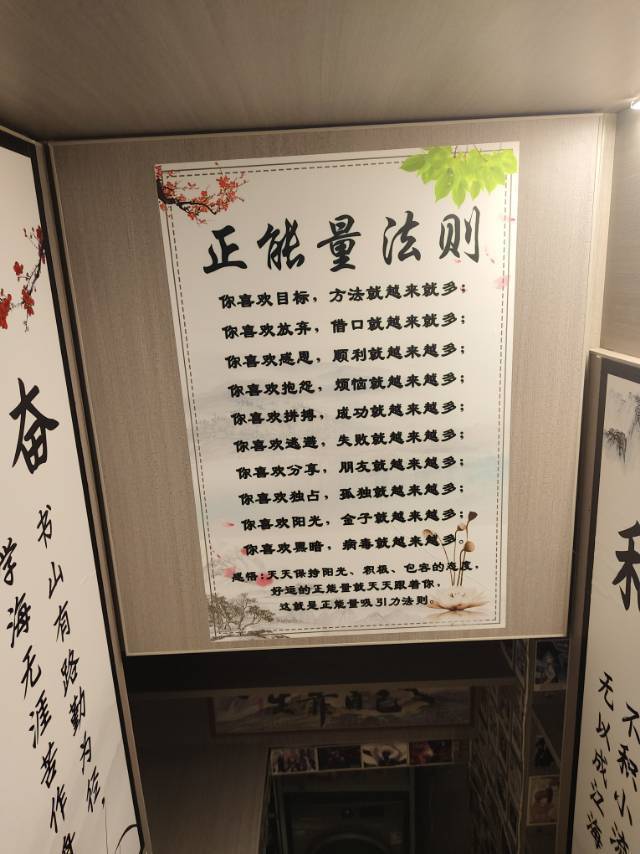 正能量法则
你喜欢目标，方法就越来就多；
你喜欢放弃，借口就越来就多；
你喜欢感恩，顺利就越来越多；
你喜欢抱怨，烦恼就越来越多；
你喜欢拼搏，成功就越来越多；
你喜欢逃避，失败就越来越多；
你喜欢分享，朋友就越来越多；
你喜欢独占，孤独就越来越多；
你喜欢阳光，金子就越来越多；
你喜欢黑暗，病毒就越来越多。
感悟：天天保持阳光、积极、包容的态度，
好运的正能量就天天跟着你，
这就是正能量吸引力法则。
奋
书山有路勤为径，
学海无涯苦作
不积小流
无以成江海
生靠自己